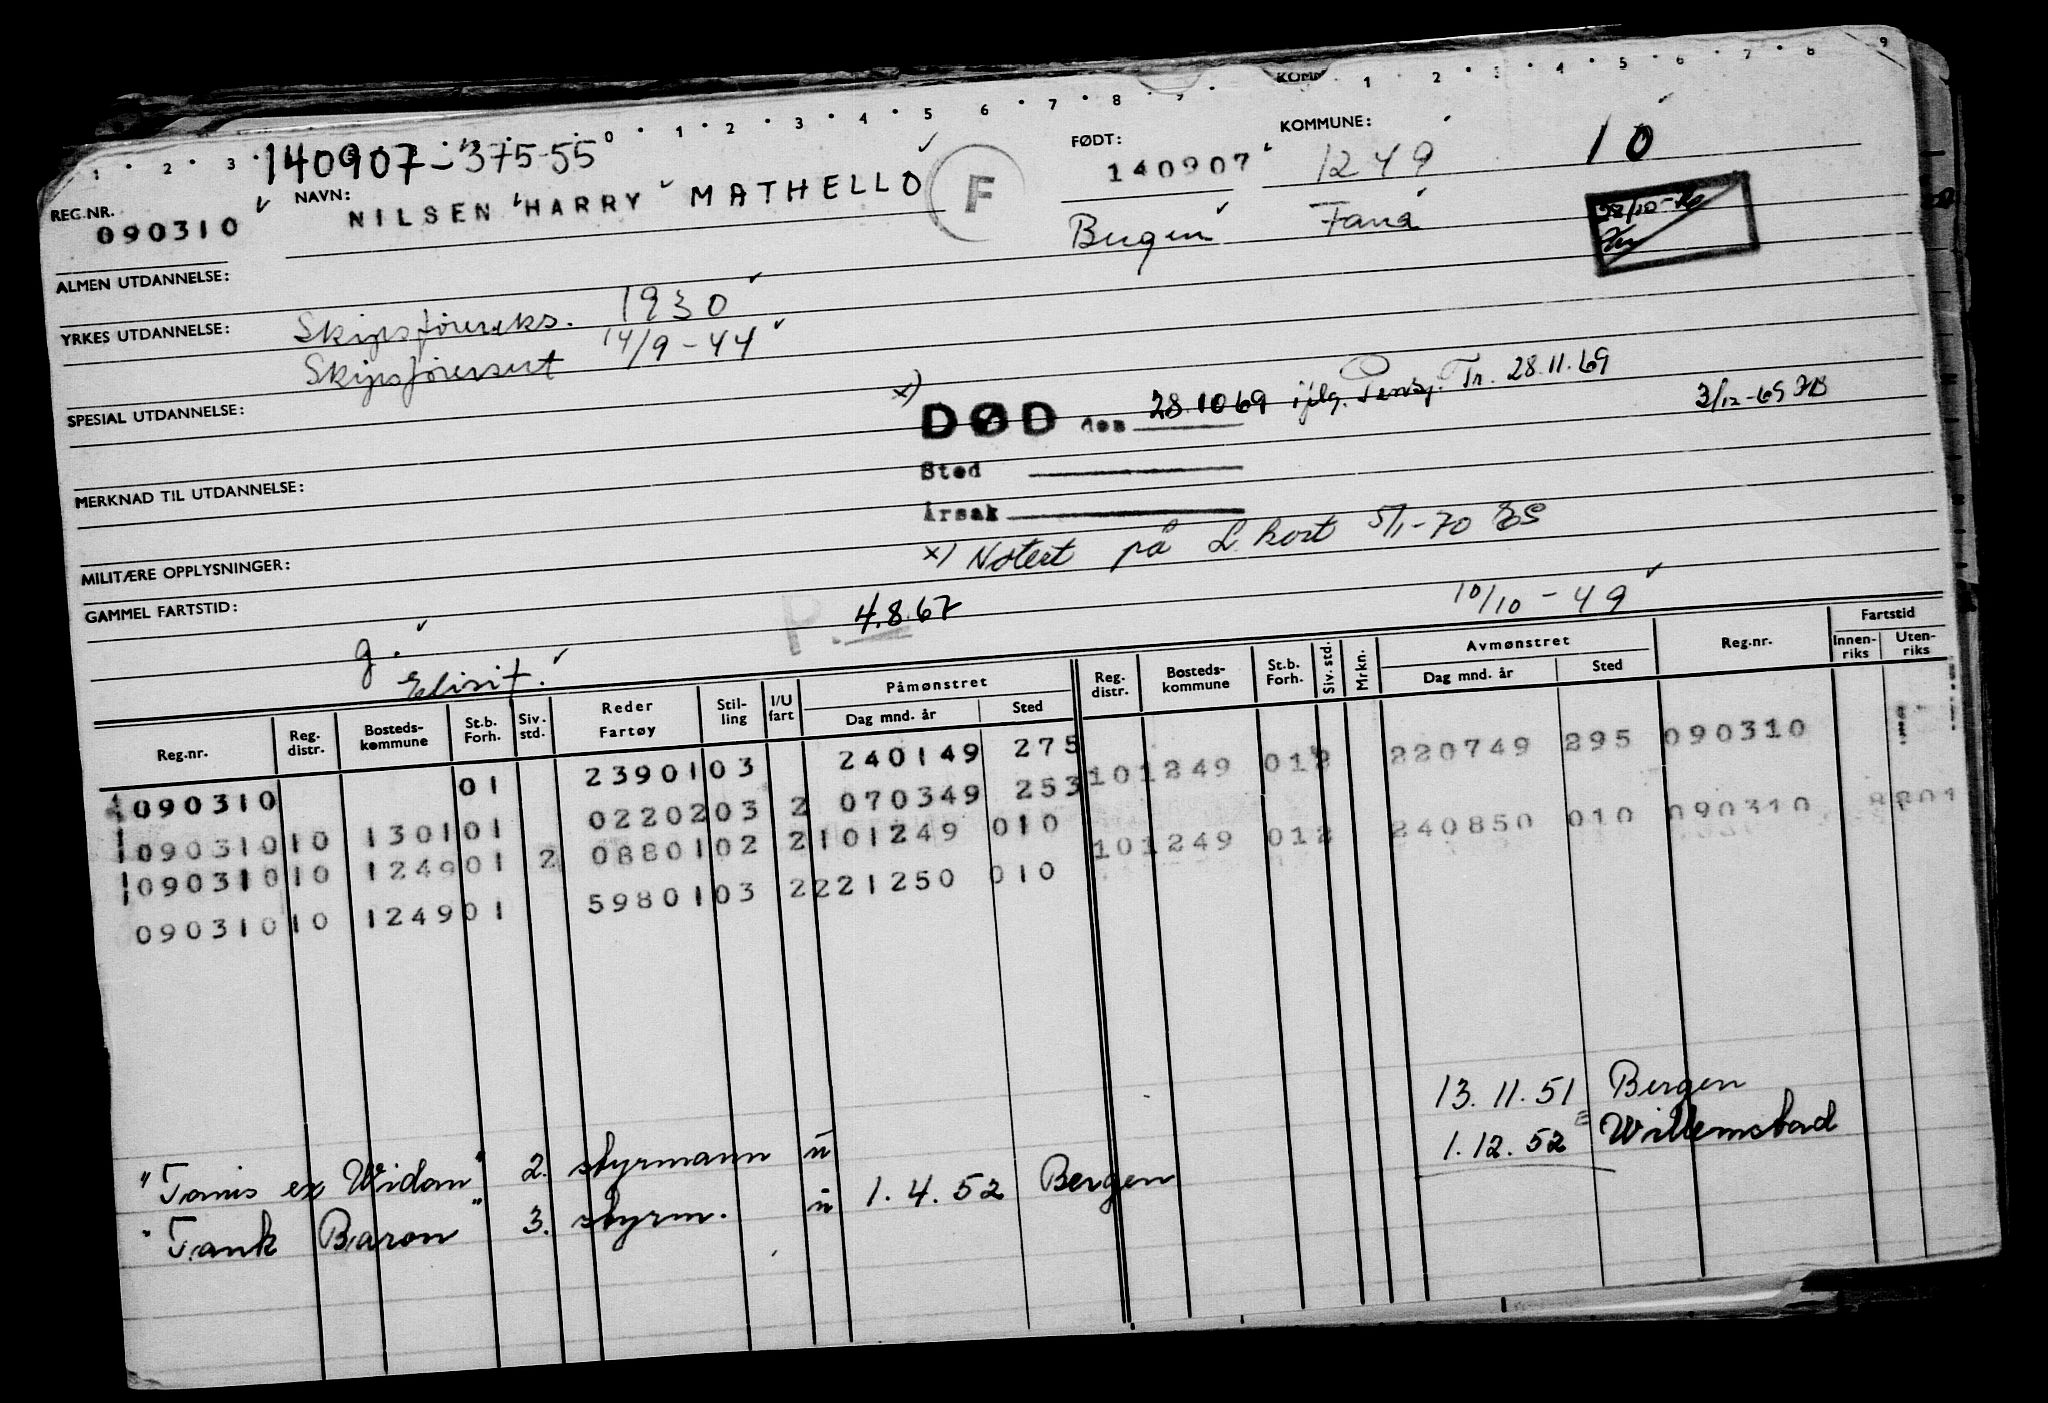 1 2 3 0 1 2 3 4 5 6 7 8 KOMM 1 2 3 4 5 6 7 8 9
140907-375-55
REG.NR. 090310
NAVN: NILSEN HARRY MATHELLO
F
FØDT: 140907
Bergen
KOMMUNE: 1249
Fana
10
ALMEN UTDANNELSE:
YRKES UTDANNELSE: Skipsførereks. 1930
Skipsførersert 14/9-44
SPESIAL UTDANNELSE:
x)
DØD den 28.10.69 iflg. Pensj. Tr. 28.11.69
3/12-69
Sted
Årsak
MERKNAD TIL UTDANNELSE:
x) Notert på L kort 5/1-70
MILITÆRE OPPLYSNINGER:
GAMMEL FARTSTID:
g.
P. 4.8.67
10/10-49
Elisit.
Reg.nr. Reg. distr. Bosteds-kommune St.b. Forh. Siv. std. Reder Fartøy Stil-ling I/U fart Påmønstret Dag mnd. år Sted Reg. distr. Bosteds-kommune St.b. Forh. Siv. std. Mrkn. Avmønstret Dag mnd. år Sted Reg.nr. Fartstid Innen-riks Uten-riks
090310 01 23901 03 240149 275 10 1249 01 2 220749 295 090310
090310 10 1301 01 02202 03 2 070349 253
090310 10 1249 01 2 08801 02 2 101249 010 10 1249 01 2 240850 010 090310 8801
090310 10 1249 01 59801 03 2 221250 010
"Tamis ex Widan" 2. styrmann u 13.11.51 Bergen
"Tank Baron" 3. styrm. u 1.4.52 Bergen 1.12.52 Willemstad